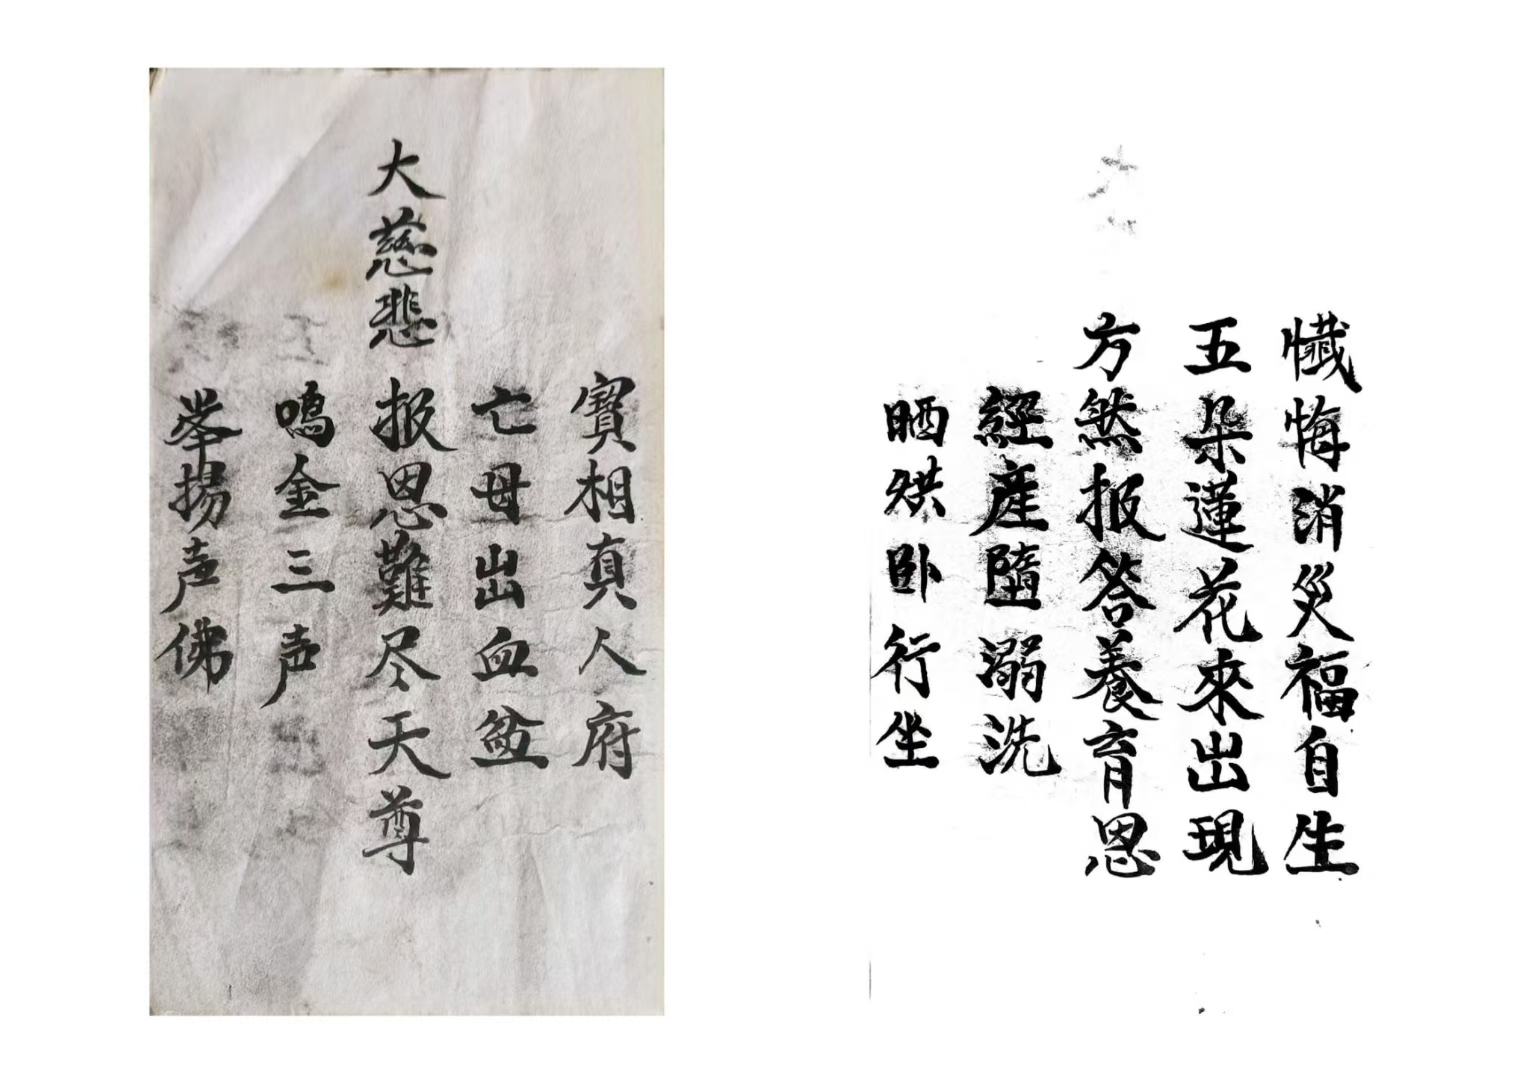 懺悔消災福自生
五朵蓮花來出現
方然报答養育恩
經產墮溺洗
晒烘卧行坐
寳相真人府
亡母出血盆
大慈悲报恩難尽天尊
鳴金三声
举揚声佛